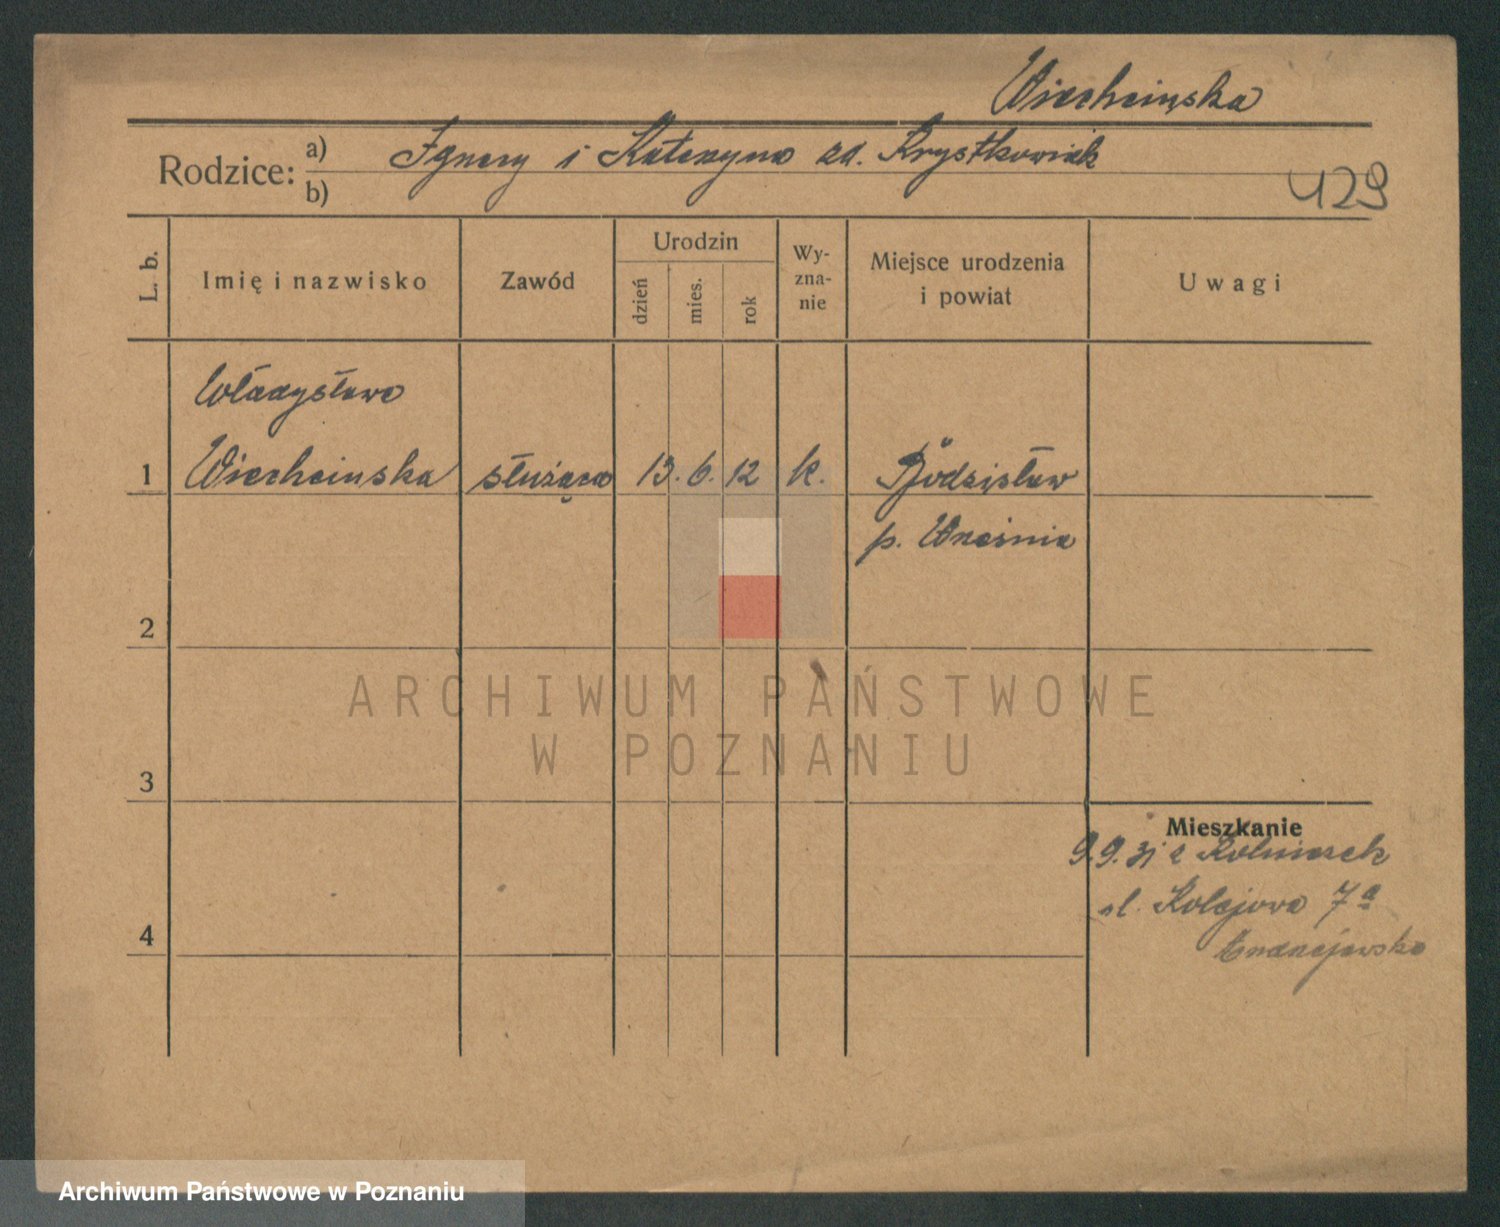 Wiechcińska
Rodzice: a) Ignacy i Katarzyna zd. Krystkowiak
b)
429
L. b.
Imię i nazwisko
Zawód
Urodzin
dzień
mies.
rok
Wy-
zna-
nie
Miejsce urodzenia
i powiat
Uwagi
Władysława
1 Wiechcinska służąca 13. 6. 12 k.
p. Września
2
ARCHIWUM PAŃSTWOWE
W POZNANIU
3
Mieszkanie
9.9.31 z
ul. Kolejowa 7a
4
Andrzejewska
Archiwum Państwowe w Poznaniu